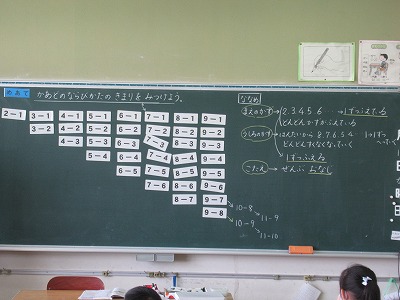 めあて かあどのならびかたの きまりを みつけよう。
2-1 3-1 4-1 5-1 6-1 7-1 8-1 9-1
3-2 4-2 5-2 6-2 7-2 8-2 9-2
4-3 5-3 6-3 7-3 8-3 9-3
5-4 6-4 7-4 8-4 9-4
6-5 7-5 8-5 9-5
7-6 8-6 9-6
8-7 9-7
9-8
10-8
11-9
10-9
11-10
ななめ
まえのかず 2.3.4.5.6 … 1ずつふえている
どんどんかずがふえている
うしろのかず はんたいから 8.7.6.5.4 … 1こずつ
へっていく
どんどんすくなくなっていく
1ずつふえる
こたえ ぜんぶ おなじ